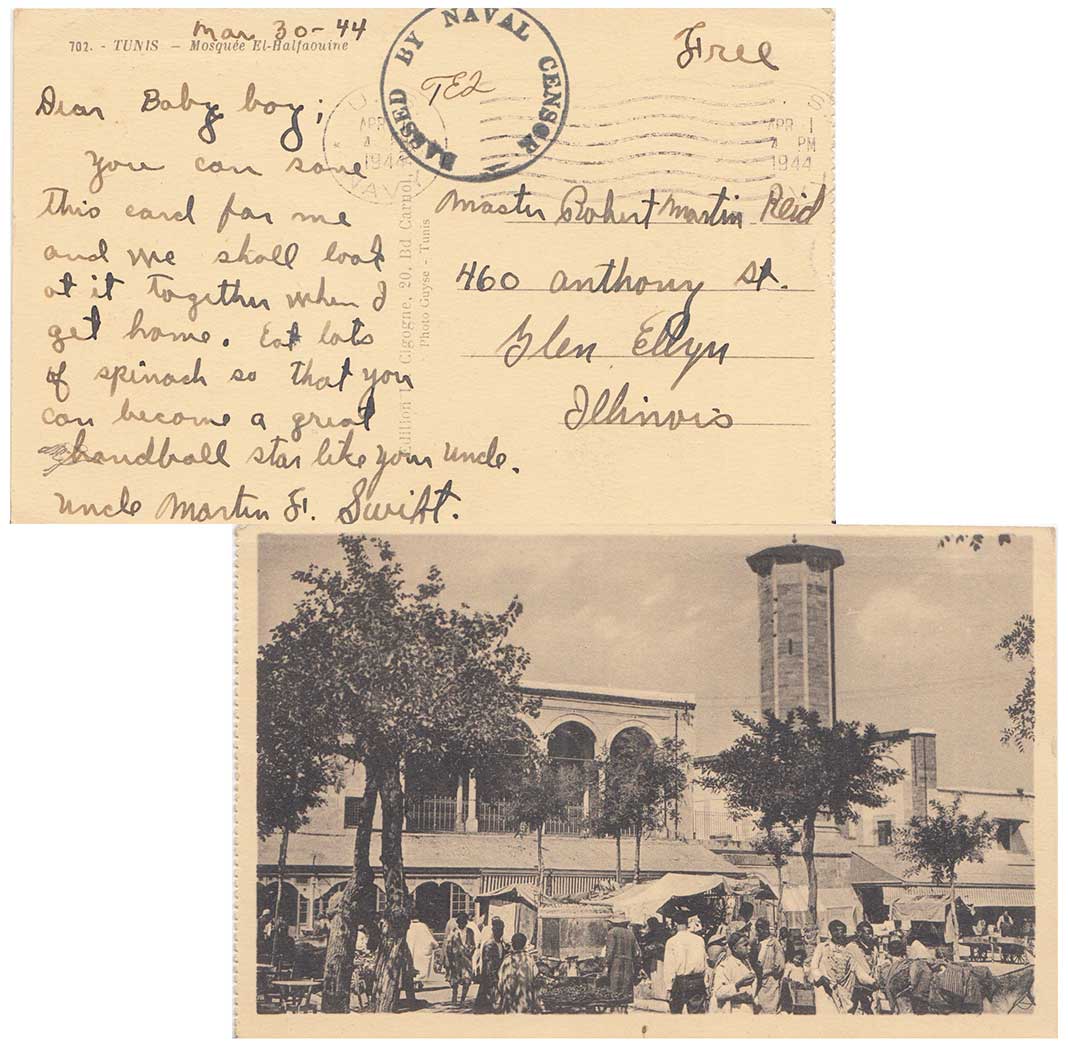 Mar 30-44
702. - TUNIS - Mosquée El-Halfaouine
Free
PASSED BY NAVAL CENSOR
U.S.
APR 1
4 PM
1944
NAVY
U.S.
APR 1
4 PM
1944
Dear Baby boy;
You can save
this card for me
and we shall look
at it together when I
get home. Eat lots
of spinach so that you
can become a great
handball star like your uncle.
Uncle Martin F. Swift.
Cigogne, 20, Bd Carnot,
Photo Guyse - Tunis
Master Robert Martin Reid
460 Anthony St.
Glen Ellyn
Illinois